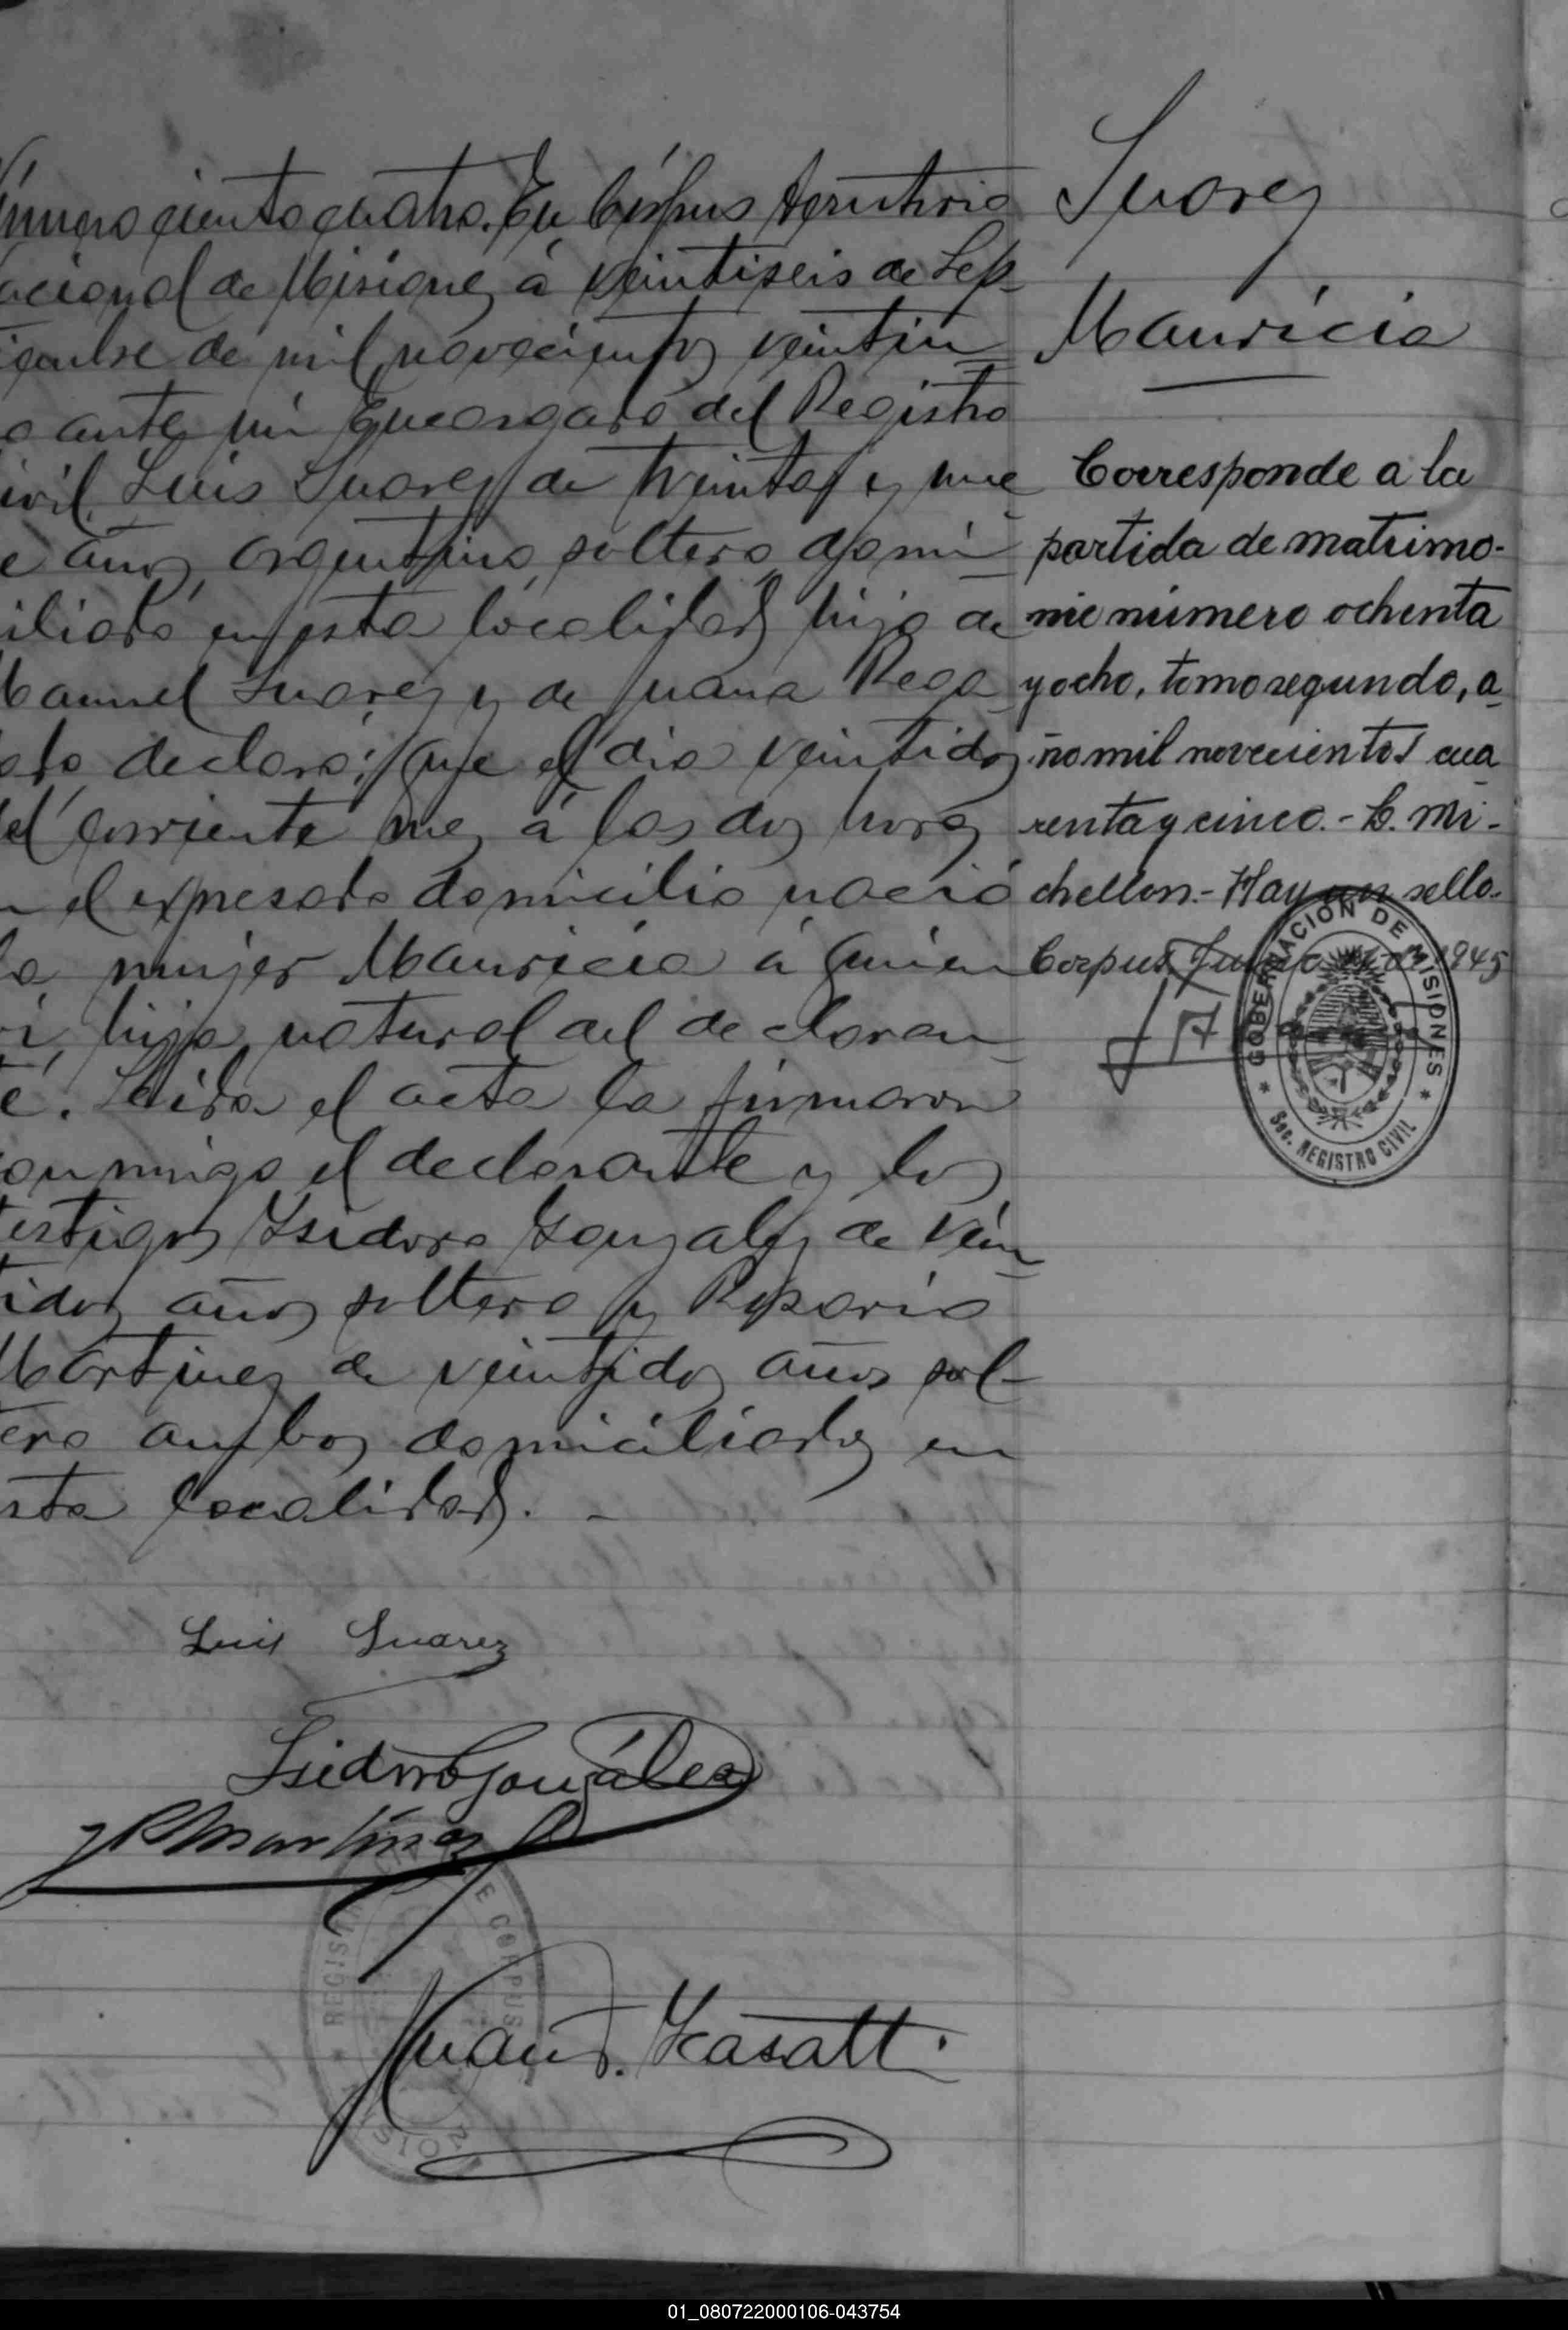 úmero ciento cuatro. En Córpus territorio
acional de Misiones á veintiseis de Sep-
iembre de mil novecientos veintiu
o ante mi Encargado del Registro
ivil, Luis Suarez de treinta y nue
e años, argentino, soltero, domi-
iliado en esta localidad, hijo de
Manuel Suarez y de Juana
declaró: que el dia veintidos
el corriente mes á las dos horas
n el expresado domicilio nació
la mujer Mauricia á quien
i, hija natural del declaran-
te. Leida el acta la firmaron
conmigo el declarante y los
testigos Isidoro Gonzalez de vein-
tidos años soltero y Rosario
Martinez de veintidos años sol-
tero ambos domiciliados en
sta localidad. -
Luis Suarez
Isidoro González
R Martínez
Juan Casatti
REGIST DE CORPUS
MISIONES
Suarez
Mauricia
Corresponde a la
partida de matrimo-
nio número ochenta
y ocho, tomo segundo, a
ño mil novecientos cua
renta y cinco. - C. Mi-
chellon. - Hay un sello.
Corpus, 1945
GOBERNACION DE MISIONES
Sec. REGISTRO CIVIL
01_080722000106-043754